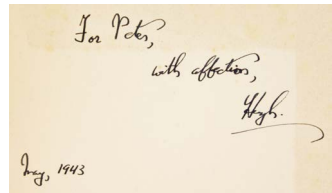 For Peter,
with affection,
Hugh.
May, 1943